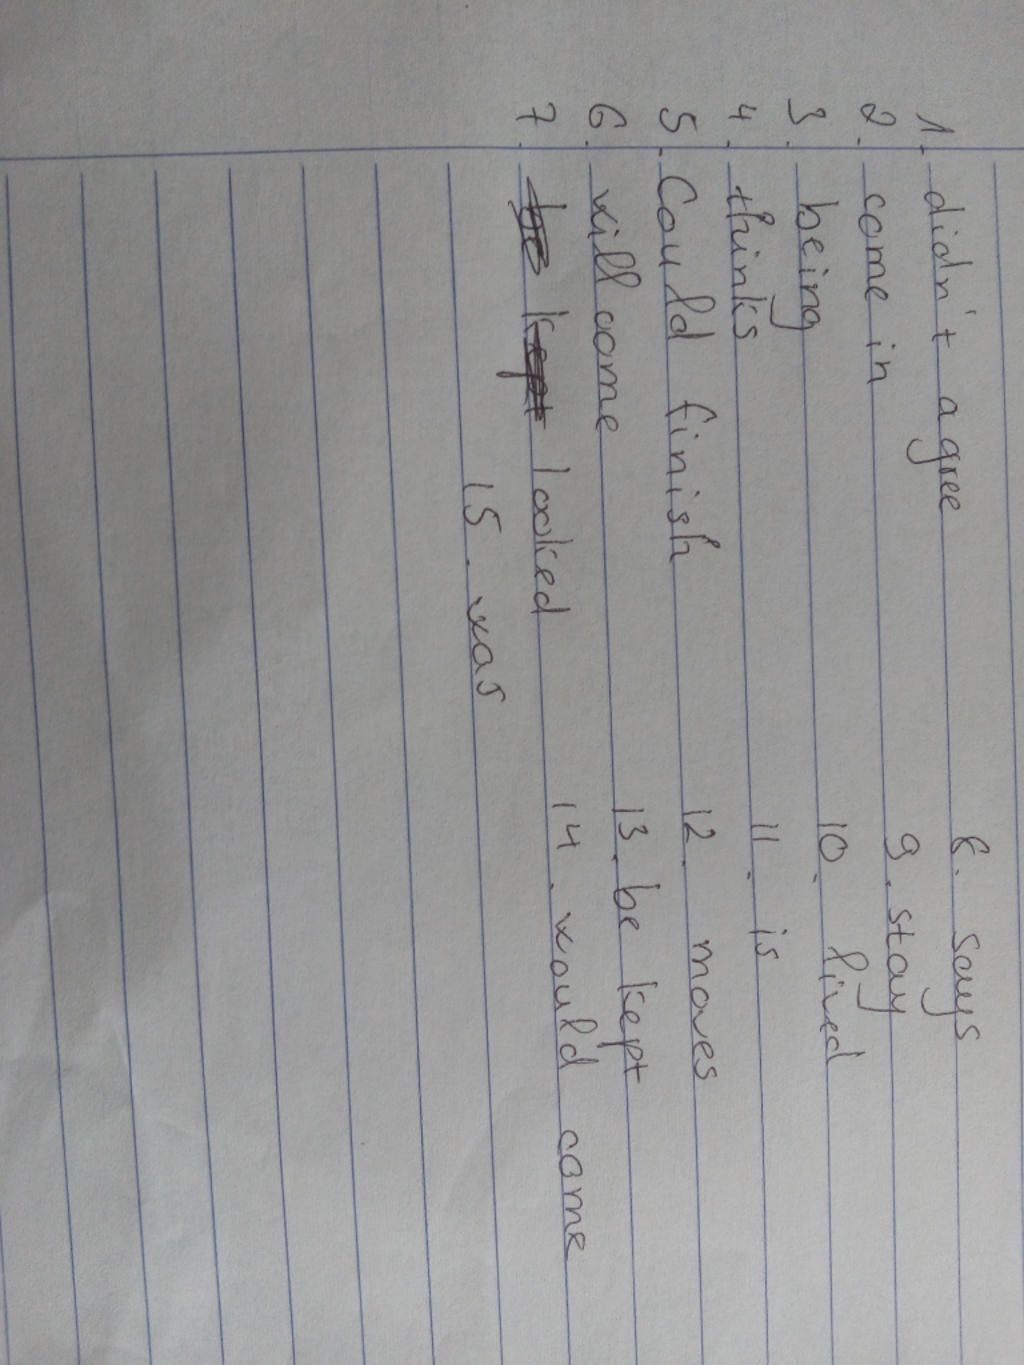 1. didn't agree
2. come in
3. being
4. thinks
5. Could finish
6. will come
7. looked
8. says
9. stay
10. lived
11. is
12. moves
13. be kept
14. would come
15. was